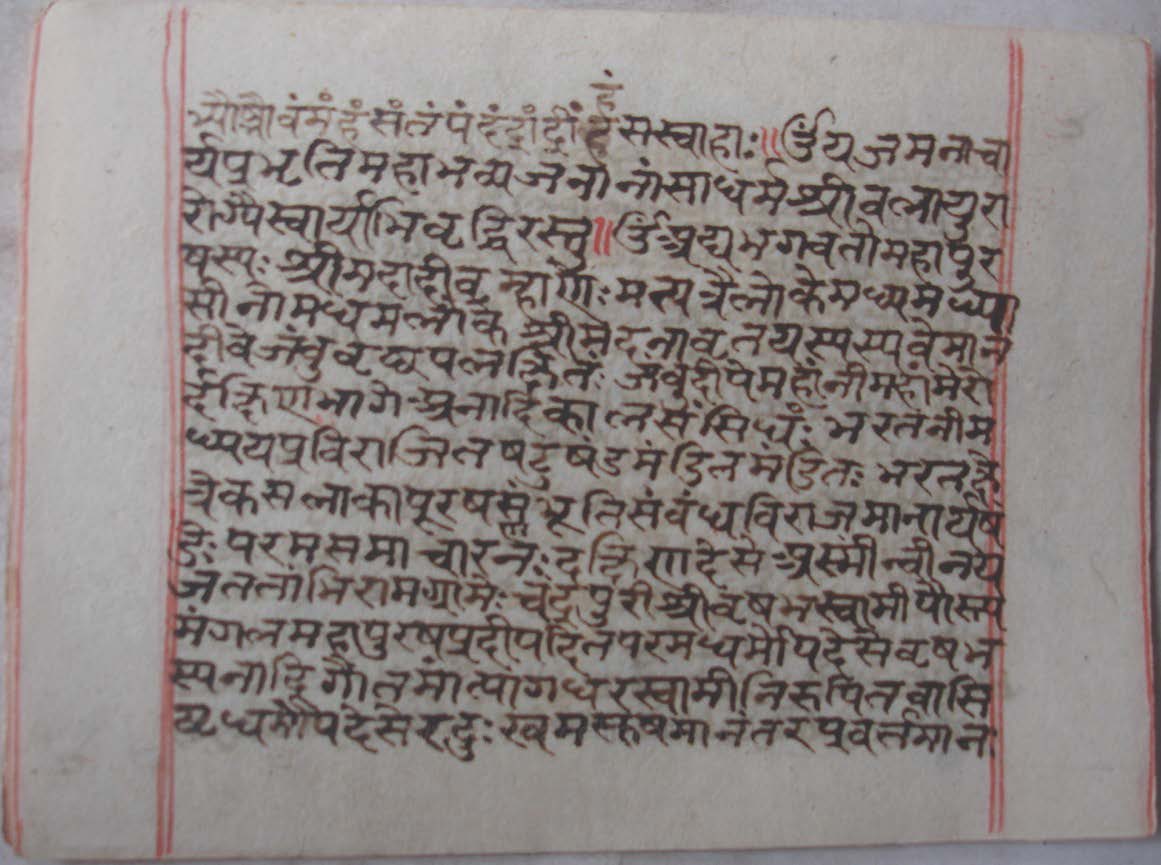 हं
वंमंहंसंतंपंहंद्रांद्रीं हं सस्वाहाः॥ उँयजमनाचा
र्यप्रभृतिमहाभव्यजनानांसाधर्मश्रीवलायुरा
रोग्यैस्वार्याभिवृद्धिरस्तु॥ उँअद्यभगवतोमहापुर
षस्पः श्रीमदादीव्रम्हाणेः मत्पत्रैलोकेमध्यमध्या
सीनोमधमलोके श्रीमदनावृतयस्पस्पवेमान
दीवेजंवुवृछपलक्षितंः जंवुदीपेमहांनीमहांमेरो
र्दक्षिणभागेअनादिकालसंसिधंः भरतनीम
ध्ययप्रविराजितषटुषंडमंडितमंडितः भरतक्षे
त्रैकसलाकापूरषस्सं भूतिसंवंधविराजमानार्यषं
डेः परमसमाचारनः दक्षिणादेसेअस्मीन्वीनय
जनतांभिरामग्रामेः चंद्रपुरीश्रीवृषभस्वामीपौरूप
मंगलमहापुरुषप्रदीपदितपरमधर्मोपदेसेवृषभ
स्पनादिगौतमांत्पागधरस्वामीनिरुपितवासि
छधर्मोपदेसेरदुः खमस्तषमानंतरप्रवर्तमानः